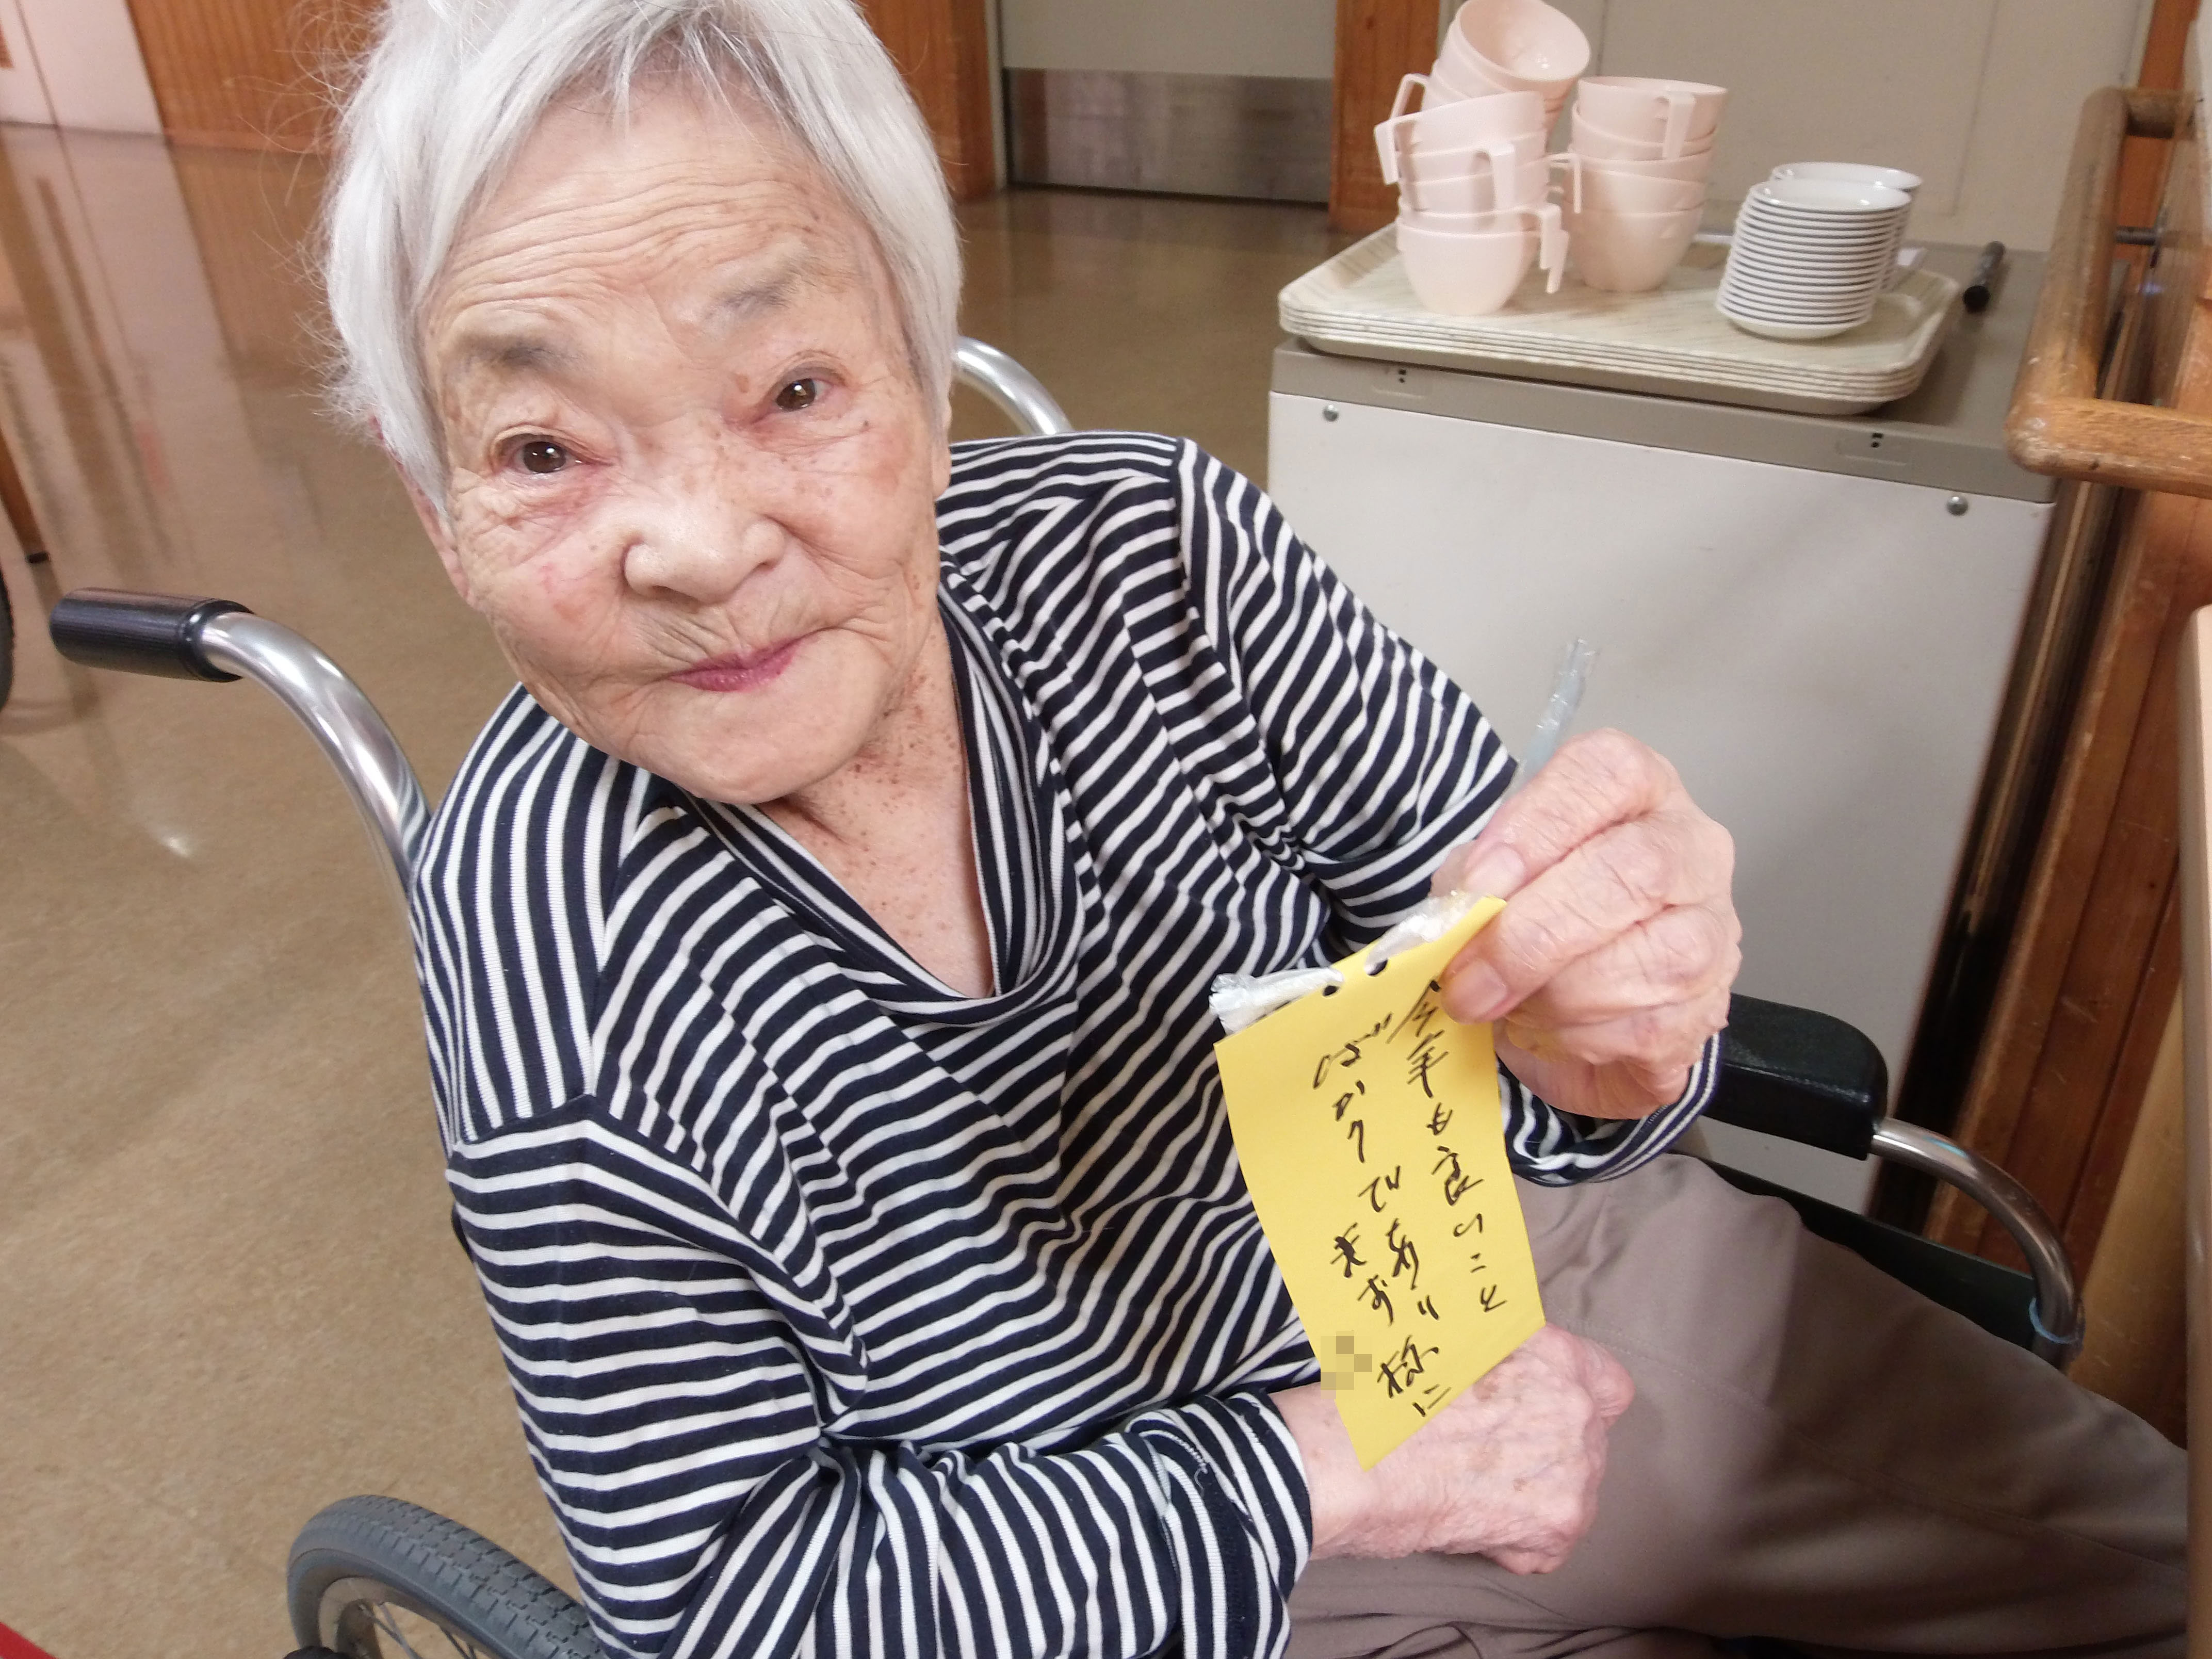 今年も良いこと
ばかりであり様に
ます